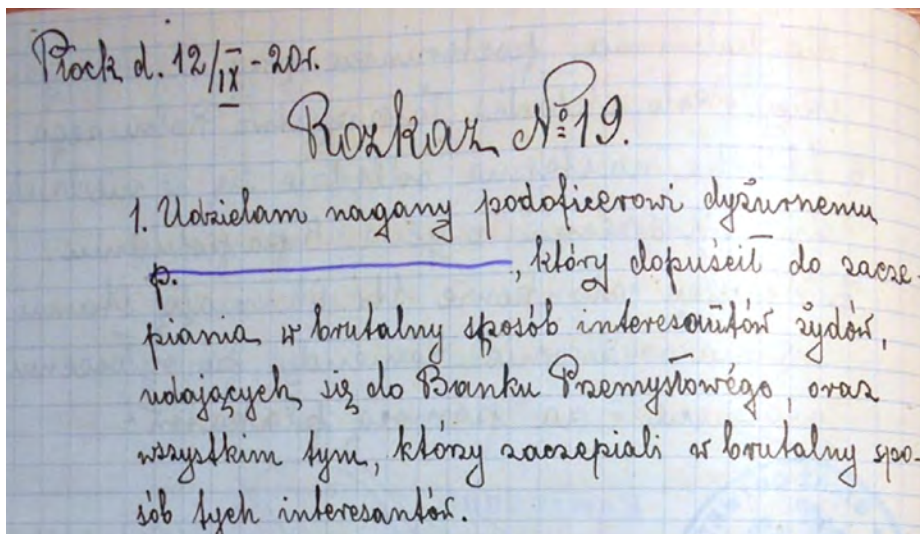 Płock d. 12/IX - 20r.
Rozkaz №19.
1. Udzielam nagany podoficerowi dyżurnemu
p. , który dopuścił do zacze-
piania w brutalny sposób interesantów żydów,
udających się do Banku Przemysłowego, oraz
wszystkim tym, którzy zaczepiali w brutalny spo-
sób tych interesantów.